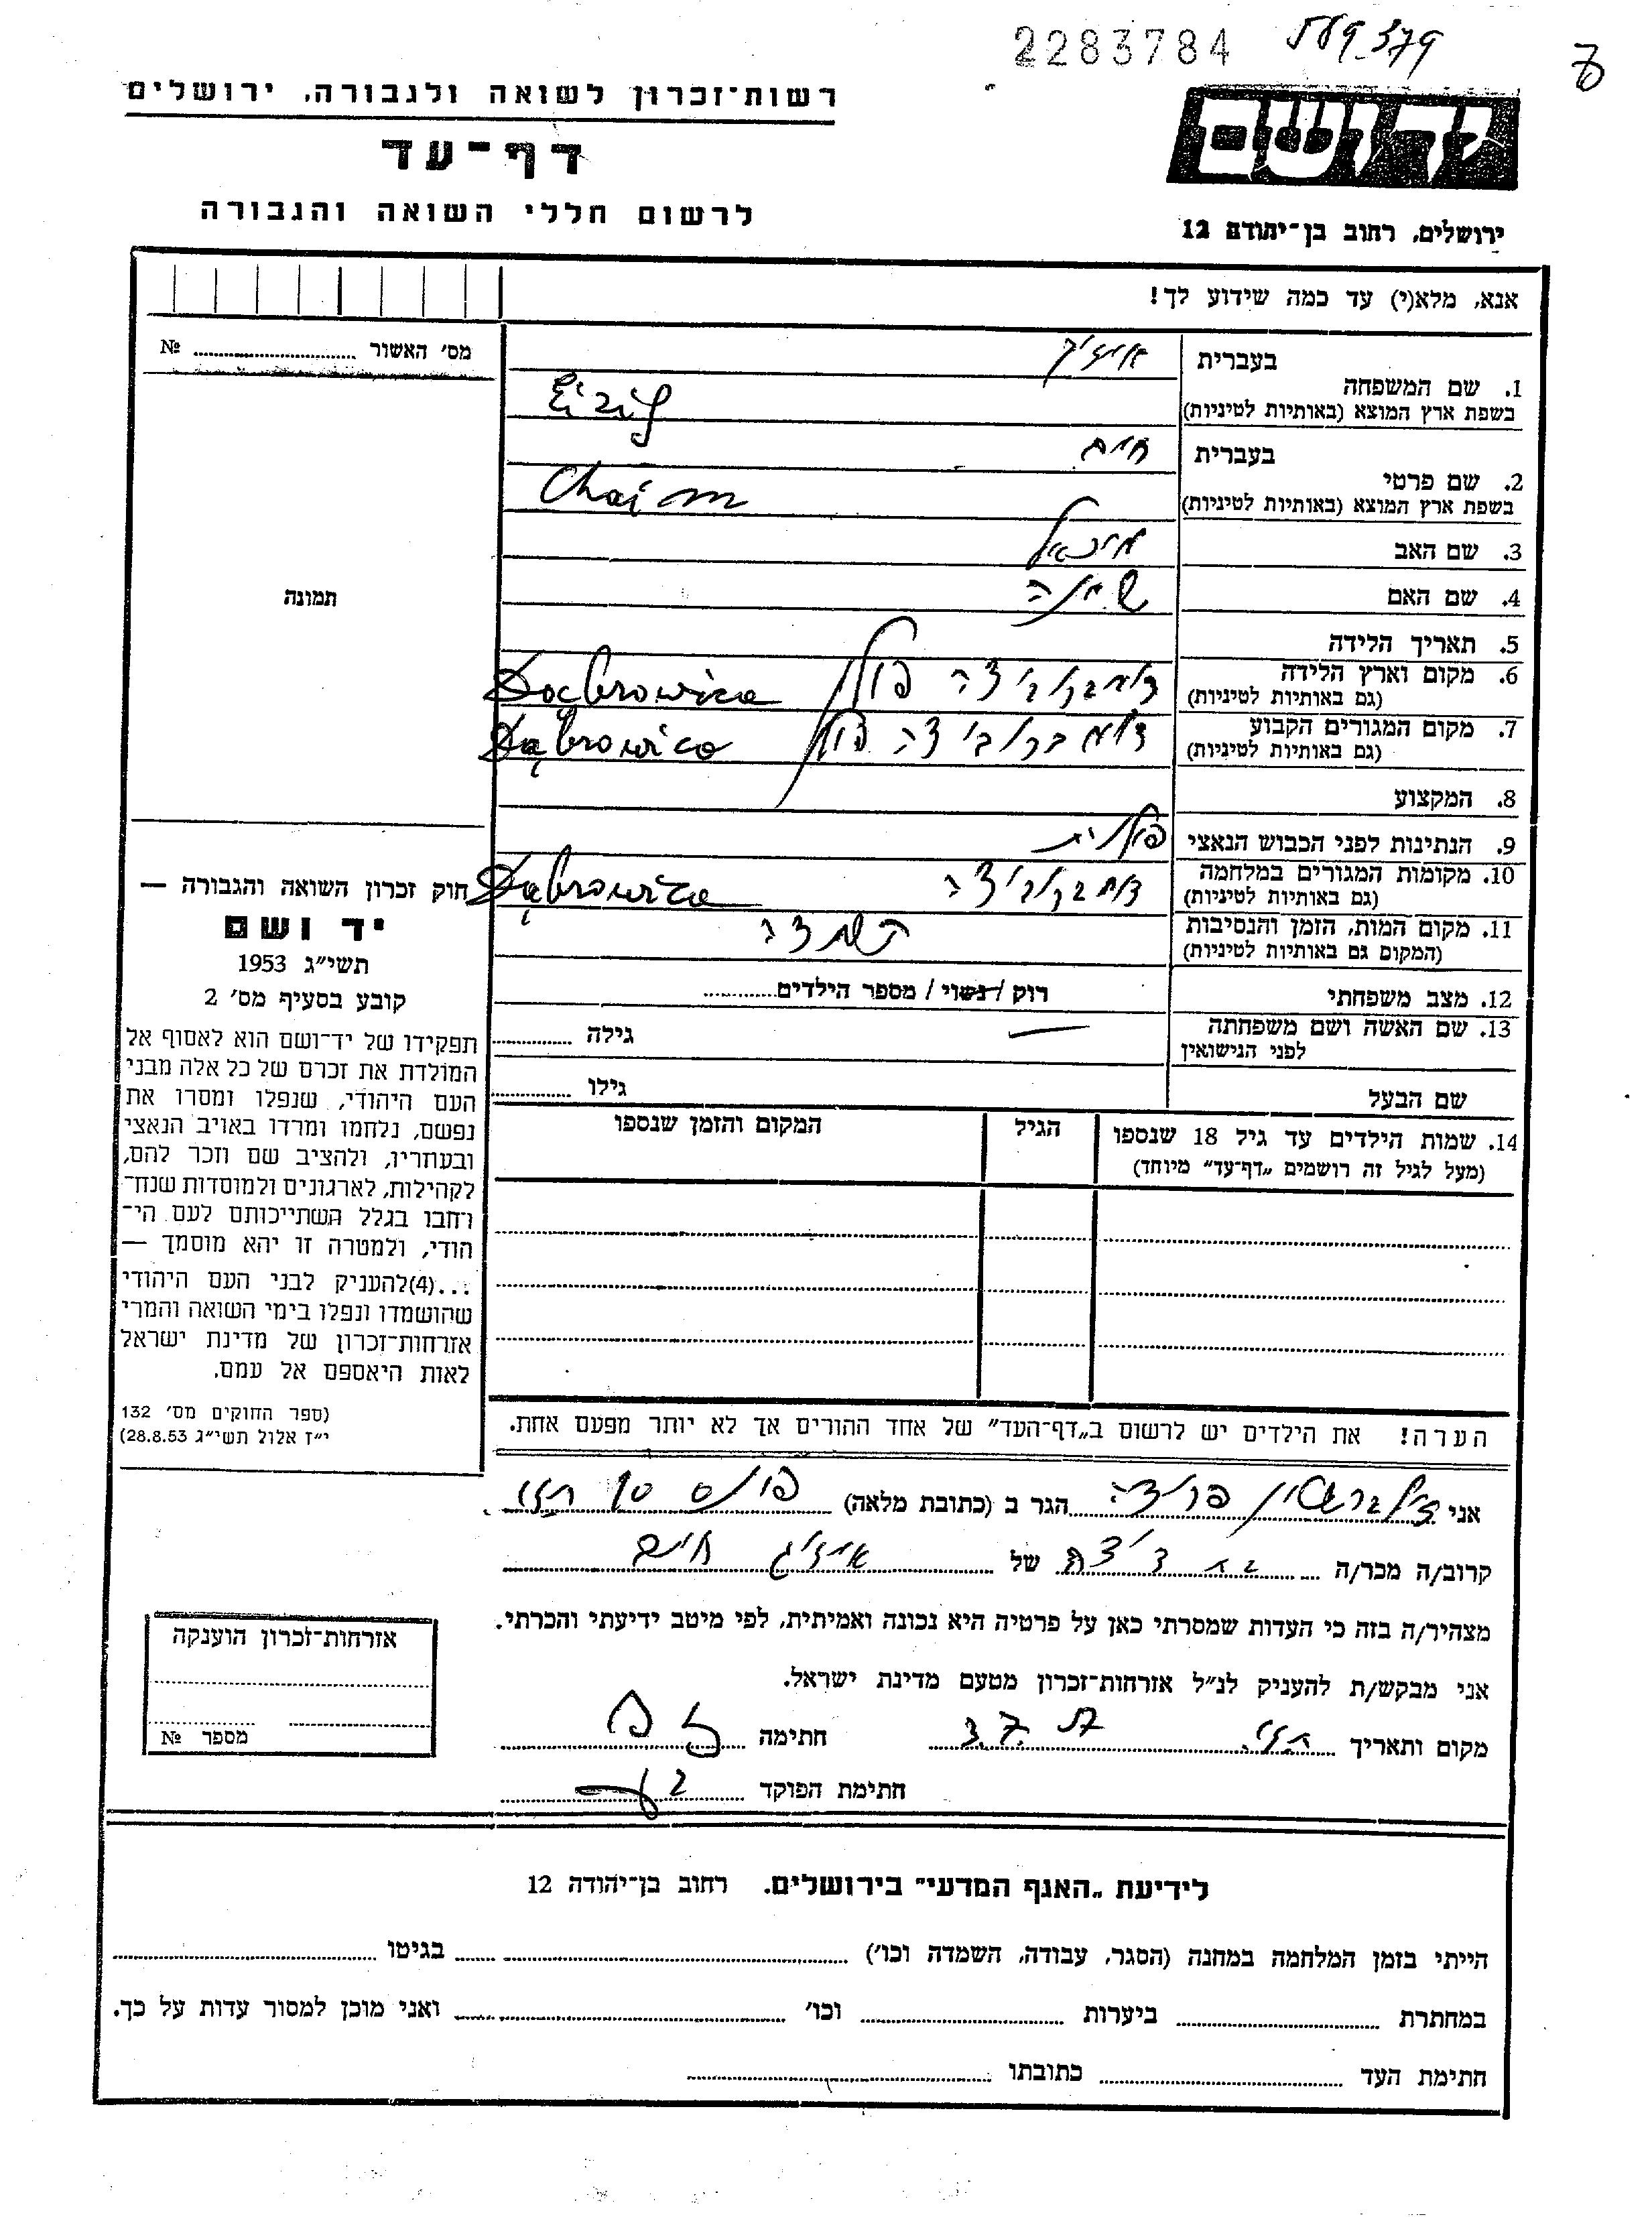 2283784
569379
רשות־זכרון לשואה ולגבורה, ירושלים
דף־עד
לרשום חללי השואה והגבורה
יד ושם
ירושלים, רחוב בן־יהודה 12
אנא, מלא(י) עד כמה שידוע לך!
מס׳ האשור № 
בעברית אייזיק
1. שם המשפחה
בשפת ארץ המוצא (באותיות לטיניות)
בעברית חיים
2. שם פרטי
בשפת ארץ המוצא (באותיות לטיניות) Chaim
3. שם האב מיכאל
4. שם האם
5. תאריך הלידה
6. מקום וארץ הלידה דומברוביצה פולין
(גם באותיות לטיניות)
7. מקום המגורים הקבוע דומברוביצה פולין Dąbrowica
(גם באותיות לטיניות)
8. המקצוע
9. הנתינות לפני הכבוש הנאצי פולנית
10. מקומות המגורים במלחמה דומברוביצה Dąbrowica
(גם באותיות לטיניות)
11. מקום המות, הזמן והנסיבות
(המקום גם באותיות לטיניות)
12. מצב משפחתי רוק / נשוי / מספר הילדים
13. שם האשה ושם משפחתה — גילה
לפני הנישואין
שם הבעל גילו
14. שמות הילדים עד גיל 18 שנספו הגיל המקום והזמן שנספו
(מעל לגיל זה רושמים „דף־עד” מיוחד)
תמונה
חוק זכרון השואה והגבורה —
יד ושם
תשי״ג 1953
קובע בסעיף מס׳ 2
תפקידו של יד־ושם הוא לאסוף אל
המולדת את זכרם של כל אלה מבני
העם היהודי, שנפלו ומסרו את
נפשם, נלחמו ומרדו באויב הנאצי
ובעוזריו, ולהציב שם וזכר להם,
לקהילות, לארגונים ולמוסדות שנח־
רחבו בגלל השתייכותם לעם הי־
הודי, ולמטרה זו יהא מוסמך —
...(4)להעניק לבני העם היהודי
שהושמדו ונפלו בימי השואה והמרי
אזרחות־זכרון של מדינת ישראל
לאות היאספם אל עמם.
(ספר החוקים מס׳ 132
י״ז אלול תשי״ג 28.8.53)
הערה! את הילדים יש לרשום ב„דף־העד” של אחד ההורים אך לא יותר מפעם אחת.
אני זילברשטין פריצה הגר ב (כתובת מלאה)
קרוב/ה מכר/ה בת דודה של אייזיג חיים
מצהיר/ה בזה כי העדות שמסרתי כאן על פרטיה היא נכונה ואמיתית, לפי מיטב ידיעתי והכרתי.
אני מבקש/ת להעניק לנ״ל אזרחות־זכרון מטעם מדינת ישראל.
מקום ותאריך חתימה
חתימת הפוקד
אזרחות־זכרון הוענקה
מספר №
לידיעת „האגף המדעי” בירושלים. רחוב בן־יהודה 12
הייתי בזמן המלחמה במחנה (הסגר, עבודה, השמדה וכו׳) בגיטו
במחתרת ביערות וכו׳ ואני מוכן למסור עדות על כך.
חתימת העד כתובתו